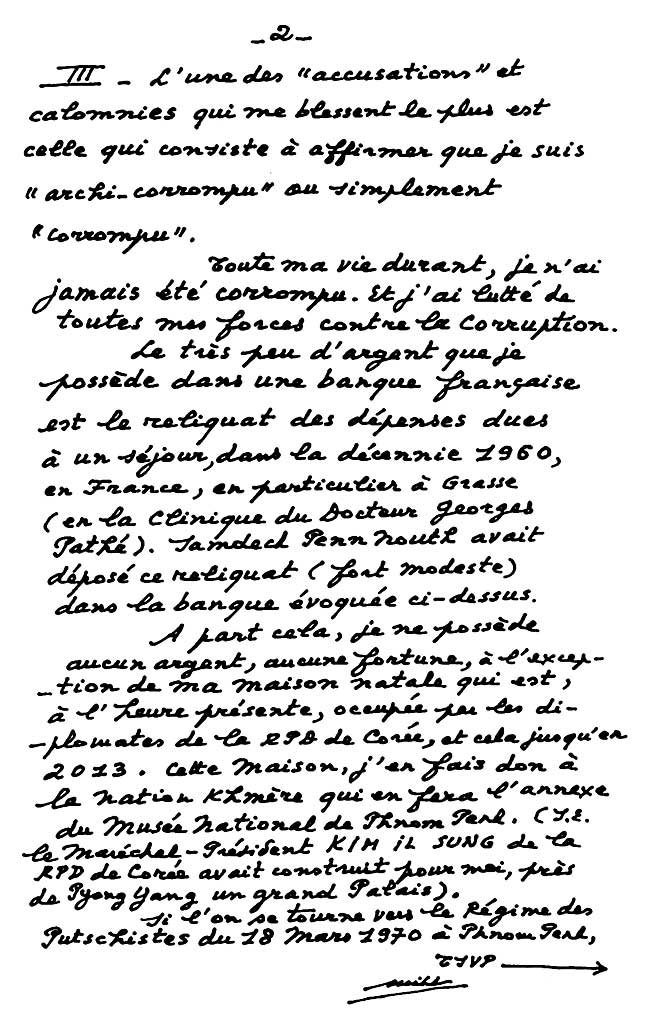 _2_
III - L'une des "accusations" et
calomnies qui me blessent le plus est
celle qui consiste à affirmer que je suis
"archi-corrompu" ou simplement
"corrompu".
Toute ma vie durant, je n'ai
jamais été corrompu. Et j'ai lutté de
toutes mes forces contre la Corruption.
Le très peu d'argent que je
possède dans une banque française
est le reliquat des dépenses dues
à un séjour, dans la décennie 1960,
en France, en particulier à Grasse
(en la Clinique du Docteur Georges
Pathé). Samdech Penn Nouth avait
déposé ce reliquat (fort modeste)
dans la banque évoquée ci-dessus.
A part cela, je ne possède
aucun argent, aucune fortune, à l'excep-
-tion de ma maison natale qui est,
à l'heure présente, occupée par les di-
-plomates de la RPD de Corée, et cela jusqu'en
2013. Cette Maison, j'en fais don à
la Nation Khmère qui en fera l'annexe
du Musée National de Phnom Penh. (S.E.
le Maréchal-Président KIM IL SUNG de la
RPD de Corée avait construit pour moi, près
de Pyong Yang un grand Palais).
Si l'on se tourne vers le Régime des
Putschistes du 18 Mars 1970 à Phnom Penh,
TSVP
suite